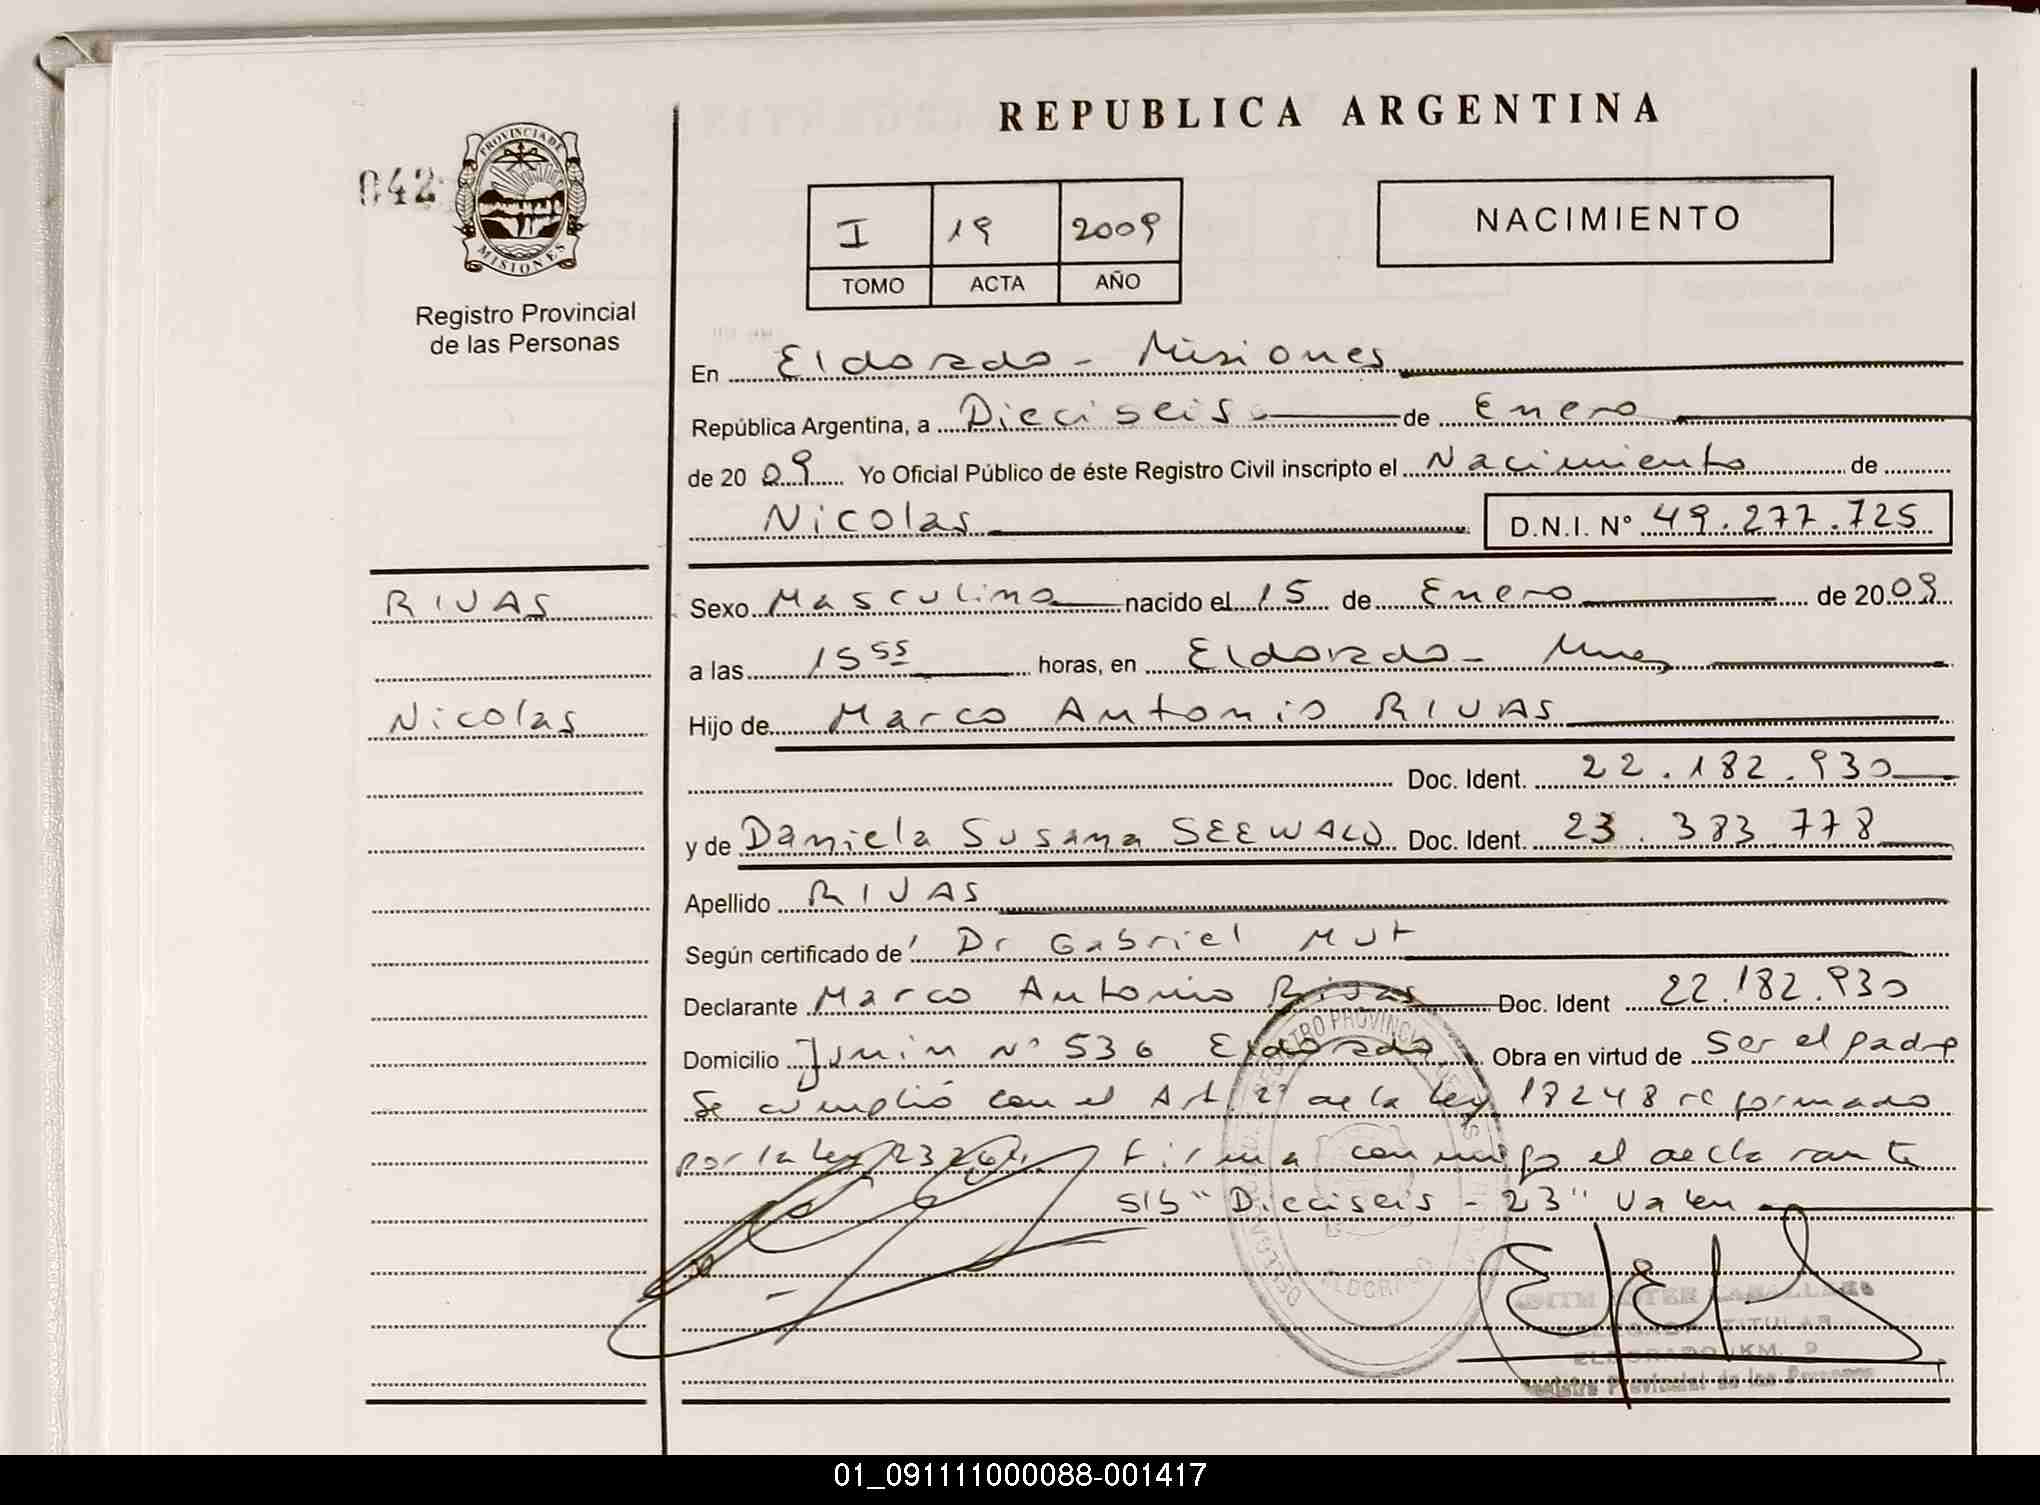 REPUBLICA ARGENTINA
042
PROVINCIA DE
MISIONES
Registro Provincial
de las Personas
I 19 2009
TOMO ACTA AÑO
NACIMIENTO
En Eldorado - Misiones
República Argentina, a Dieciseis de Enero
de 2009 Yo Oficial Público de éste Registro Civil inscripto el Nacimiento de
Nicolas D.N.I. N° 49.277.725
RIVAS
Sexo Masculino nacido el 15 de Enero de 2009
a las 15 55 horas, en Eldorado - Mnes
Nicolas
Hijo de Marco Antonio RIVAS
Doc. Ident. 22.182.930
y de Daniela Susana SEEWALD Doc. Ident. 23.383.778
Apellido RIVAS
Según certificado de Dr Gabriel Mut
Declarante Marco Antonio Rivas Doc. Ident 22.182.930
Domicilio Junin N° 536 Eldorado Obra en virtud de ser el padre
Se cumplió con el Art. 2° de la Ley 18248 reformado
por la Ley 23264. Firma conmigo el declarante
S/b "Dieciseis - 23" Valen
REGISTRO PROVINCIAL DE LAS
ELDORADO
DELEGADA TITULAR
ELDORADO KM. 9
Registro Provincial de las Personas
01_091111000088-001417